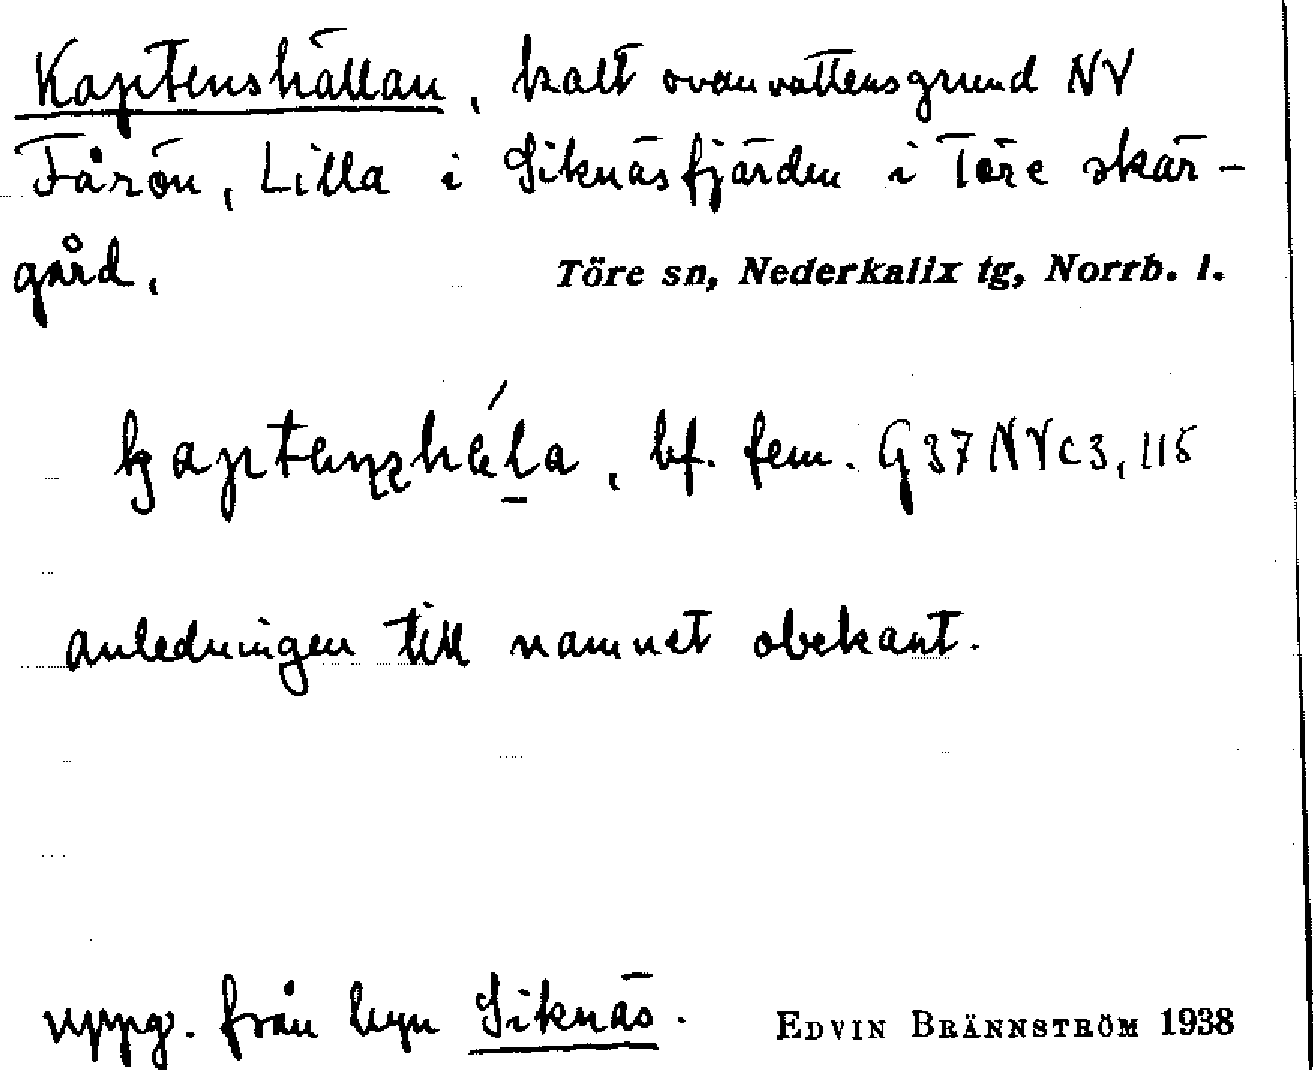 Kaptenshällan, kalt ovanvattensgrund NV
Fårön, Lilla i Siknäsfjärden i Töre skär-
gård.
Töre sn, Nederkalix tg, Norrb. l.
bf. fem. G37NVc3, 115
anledningen till namnet obekant.
uppg. från byn Siknäs.
EDVIN BRÄNNSTRÖM 1938